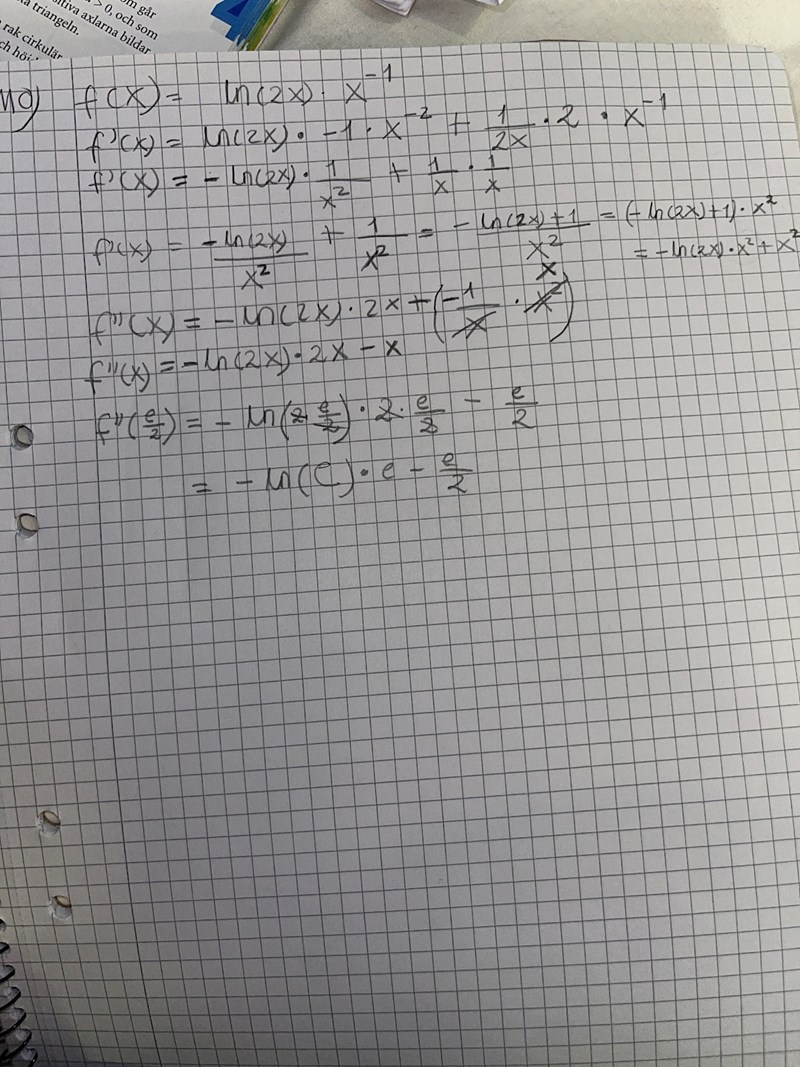 om går
sitiva axlarna bildar
> 0, och som
ta triangeln.
rak cirkulär
f(x) = ln(2x) · x⁻¹
f'(x) = ln(2x) · -1 · x⁻² + 1/2x · 2 · x⁻¹
f'(x) = - ln(2x) · 1/x² + 1/x · 1/x
f'(x) = -ln(2x)/x² + 1/x² = - ln(2x)+1/x² = (- ln(2x)+1) · x²
= -ln(2x) · x² + x²
f''(x) = - ln(2x) · 2x + (-1/x · x²) x
f''(x) = - ln(2x) · 2x - x
f''(e/2) = - ln(2 e/2) · 2 · e/2 - e/2
= - ln(e) · e - e/2